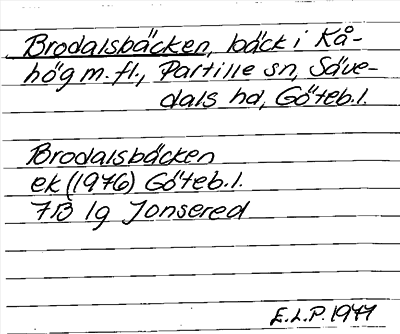 Brodalsbäcken, bäck i Kå-
hög m. fl., Partille sn, Säve-
dals hd, Göteb. l.
Brodalsbäcken
ek (1976) Göteb. l.
7B 1g Jonsered
E.L.P. 1977